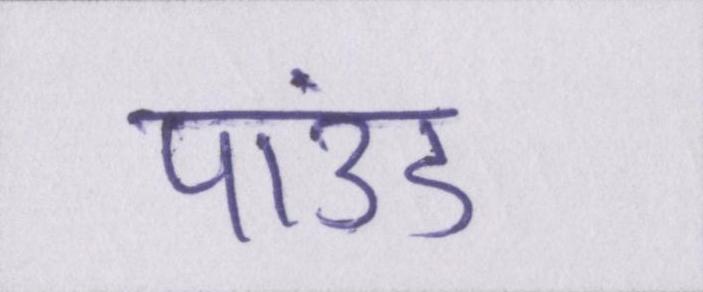 पाउंड